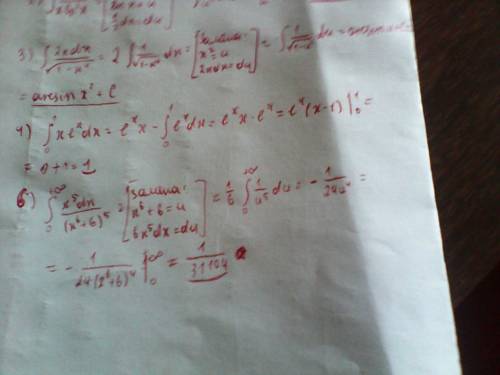 3) ∫ 2xdx / √(1-x⁴) = 2 ∫ x / √(1-x⁴) dx = [замена: x² = u 2xdx = du] = ∫ 1 / √(1-u²) du =
= arcsin x² + C
4) ∫₀¹ x eˣ dx = eˣ x - ∫₀¹ eˣ dx = eˣ x - eˣ = eˣ (x-1) |₀¹ =
= 0 + 1 = 1
6) ∫₀^{+∞} x⁵dx / (x⁶+6)⁵ = [замена: x⁶+6 = u 6x⁵dx = du] = 1/6 ∫₀^{+∞} 1/u⁵ du = - 1 / 24u⁴ =
= - 1 / 24(x⁶+6)⁴ |₀^{+∞} = 1 / 31104